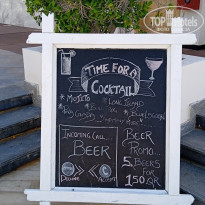 TOPHOTELS
TIME FOR A
COCKTAIL
* MOJITO
* LONG ISLAND
* BLUE LAGOON
INCOMING CALL...
BEER
DECLINE
ACCEPT
BEER
PROMO...
5 BEERS
FOR
150 QR